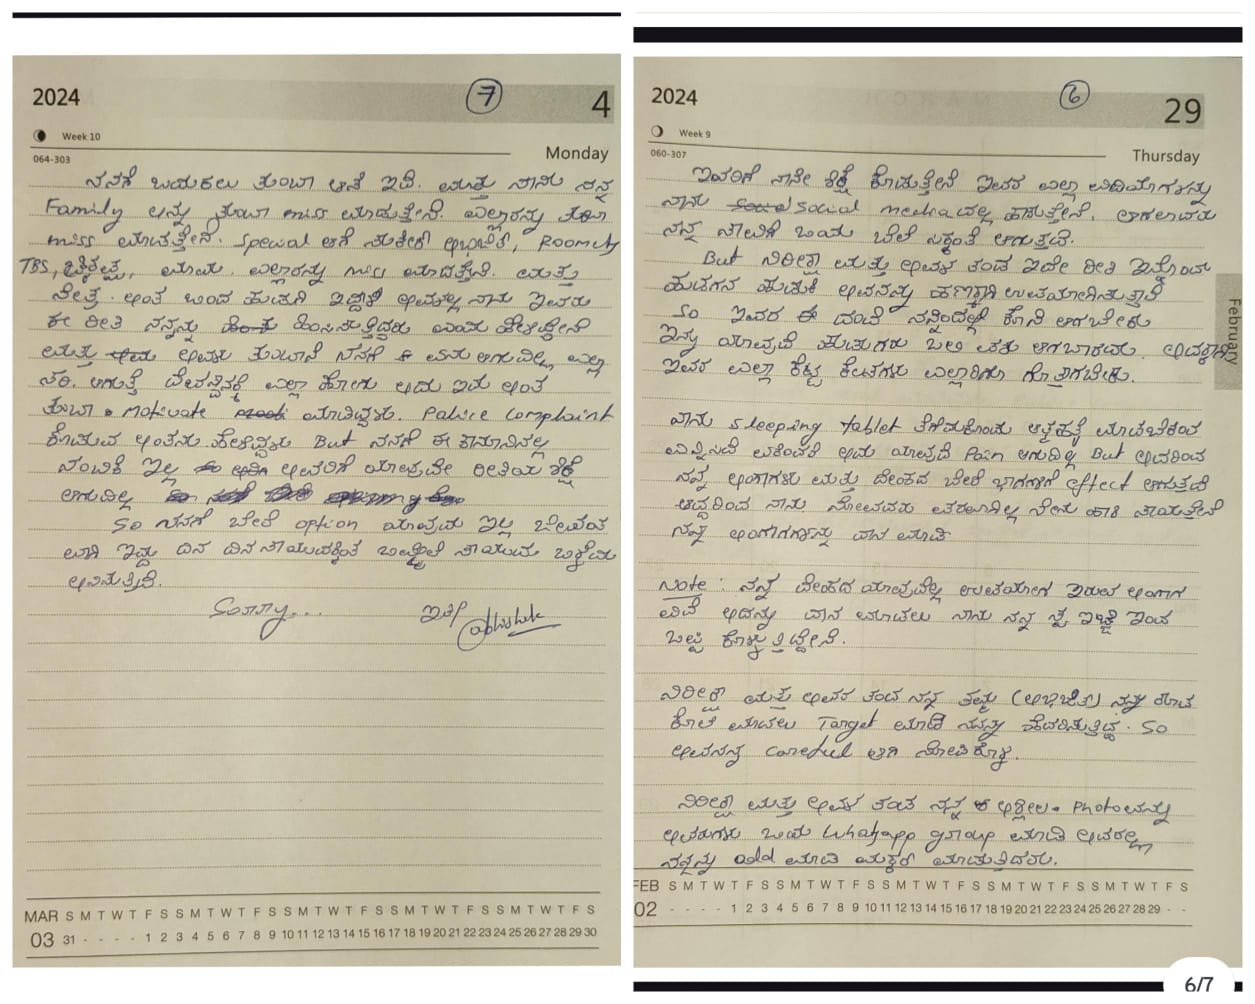 2024
7
4
Week 10
064-303
Monday
ನನಗೆ ಬದುಕಲು ತುಂಬಾ ಆಸೆ ಇದೆ. ಮತ್ತು ನಾನು ನನ್ನ
Family ಅನ್ನು ತುಂಬಾ miss ಮಾಡುತ್ತೇನೆ. ಎಲ್ಲಾರನ್ನು ತುಂಬಾ
miss ಮಾಡುತ್ತೇನೆ. Special ಆಗಿ
ಮಾಮ. ಎಲ್ಲಾರನ್ನು miss ಮಾಡುತ್ತೇನೆ. ಮತ್ತು
ಅಂತ ಒಂದು ಹುಡುಗಿ ನಾನು ಇವರು
ಈ ರೀತಿ ನನ್ನನ್ನು ಹಿಂಸಿಸುತ್ತಿದ್ದರು ಎಂದು ಹೇಳಿದ್ದೇನೆ
ಮತ್ತು ಅವಳು ತುಂಬಾನೆ ನನಗೆ ಏನು ಆಗುವುದಿಲ್ಲ ಎಲ್ಲಾ
ಸರಿ ಆಗುತ್ತೆ ಎಲ್ಲಾ ಹೋಗು ಅದು ಇದು ಅಂತ
ತುಂಬಾ motivate ಮಾಡಿದ್ದಳು. Police Complaint
ಕೊಡುವ ಅಂತನು ಹೇಳಿದ್ದಳು But ನನಗೆ ಈ ಕಾನೂನಿನಲ್ಲಿ
ನಂಬಿಕೆ ಇಲ್ಲ ಅವರಿಗೆ ಯಾವುದೇ ರೀತಿಯ ಶಿಕ್ಷೆ
ಆಗುವುದಿಲ್ಲ
So ನನಗೆ ಬೇರೆ option ಯಾವುದು ಇಲ್ಲ
ಇದ್ದು ದಿನ ದಿನ ಸಾಯುವುದಕ್ಕಿಂತ ಒಮ್ಮೆಲೆ ಸಾಯುವುದು ಒಳ್ಳೆಯದು
ಅನಿಸುತ್ತಿದೆ.
Sorry... ಇತಿ
Abhishek
MAR S M T W T F S S M T W T F S S M T W T F S S M T W T F S S M T W T F S
03 31 - - - - 1 2 3 4 5 6 7 8 9 10 11 12 13 14 15 16 17 18 19 20 21 22 23 24 25 26 27 28 29 30
2024
6
29
Week 9
060-307
Thursday
February
ಇವರಿಗೆ ನಾನೇ ಶಿಕ್ಷೆ ಕೊಡುತ್ತೇನೆ ಇವರ ಎಲ್ಲಾ ವಿಡಿಯೋಗಳನ್ನು
ನಾನು Social media ದಲ್ಲಿ ಹಾಕುತ್ತೇನೆ. ಆಗಲಾದರು
ನನ್ನ ಸಾವಿಗೆ ಒಂದು ಬೆಲೆ ಸಿಕ್ಕಂತೆ ಆಗುತ್ತದೆ.
But ನಿರೀಕ್ಷಾ ಮತ್ತು ಅವಳ ತಂಡ ಇದೇ ರೀತಿ ಇನ್ನೊಂದು
ಹುಡುಗನ ಹುಡುಕಿ ಅವನನ್ನು ಹಣಕ್ಕಾಗಿ ಉಪಯೋಗಿಸುತ್ತಾರೆ
So ಇವರ ಈ ದಂದೆ ನನ್ನಿಂದಲ್ಲೇ ಕೊನೆ ಆಗಬೇಕು
ಇನ್ನು ಯಾವುದೆ ಹುಡುಗರು ಬಲಿ ಪಶು ಆಗಬಾರದು.
ಇವರ ಎಲ್ಲಾ ಕೆಟ್ಟ ಕೆಲಸಗಳು ಎಲ್ಲಾರಿಗೂ ಗೊತ್ತಾಗಬೇಕು.
ನಾನು sleeping tablet ತೆಗೆದುಕೊಂಡು ಆತ್ಮಹತ್ಯೆ ಮಾಡಬೇಕೆಂದು
ಅದು ಯಾವುದೆ Pain ಆಗುದಿಲ್ಲ But ಅದರಿಂದ
ನನ್ನ ಅಂಗಾಗಳು ಮತ್ತು ದೇಹದ ಬೇರೆ ಭಾಗಗಳಿಗೆ effect ಆಗುತ್ತದೆ
ಆದ್ದರಿಂದ ನಾನು ನೋವಾದರು ಪರವಾಗಿಲ್ಲ ನೇಣು ಹಾಕಿ ಸಾಯುತ್ತೇನೆ
ನನ್ನ ಅಂಗಾಗಳನ್ನು ದಾನ ಮಾಡಿ
Note : ನನ್ನ ದೇಹದ ಯಾವುದೆಲ್ಲ ಉಪಯೋಗ ಇರುವ ಅಂಗಾಗ
ಇದೆ ಅದನ್ನು ದಾನ ಮಾಡಲು ನಾನು ನನ್ನ ಸ್ವ ಇಚ್ಛೆ ಇಂದ
ಒಪ್ಪಿ ಕೊಳ್ಳುತ್ತಿದ್ದೇನೆ.
ನಿರೀಕ್ಷಾ ಮತ್ತು ಅವಳ ತಂಡ ನನ್ನ ತಮ್ಮ
ಕೊಲೆ ಮಾಡಲು Target ಮಾಡಿ ನನ್ನನ್ನು ಹೆದರಿಸುತ್ತಿದ್ದ. So
ಅವನನ್ನ careful ಆಗಿ ನೋಡಿಕೊಳ್ಳಿ.
ನಿರೀಕ್ಷಾ ಮತ್ತು ಅವಳ ತಂಡ ನನ್ನ ಅಶ್ಲೀಲ Photo ವನ್ನು
ಅವರುಗಳು ಒಂದು Whatsapp group ಮಾಡಿ ಅದರಲ್ಲಿ
ನನ್ನನ್ನು add ಮಾಡಿ ಮಾಡುತ್ತಿದರು.
FEB S M T W T F S S M T W T F S S M T W T F S S M T W T F S S M T W T F S
02 - - - - 1 2 3 4 5 6 7 8 9 10 11 12 13 14 15 16 17 18 19 20 21 22 23 24 25 26 27 28 29 - -
6/7